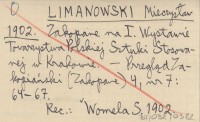 LIMANOWSKI Mieczysław
1902. Zakopane na I. Wystawie
Towarzystwa Polskiej Sztuki Stosowa-
nej w Krakowie. – Przegląd Za-
kopiański (Zakopane) 4, nr 7:
64-67.
Rec.: Womela S. 1902